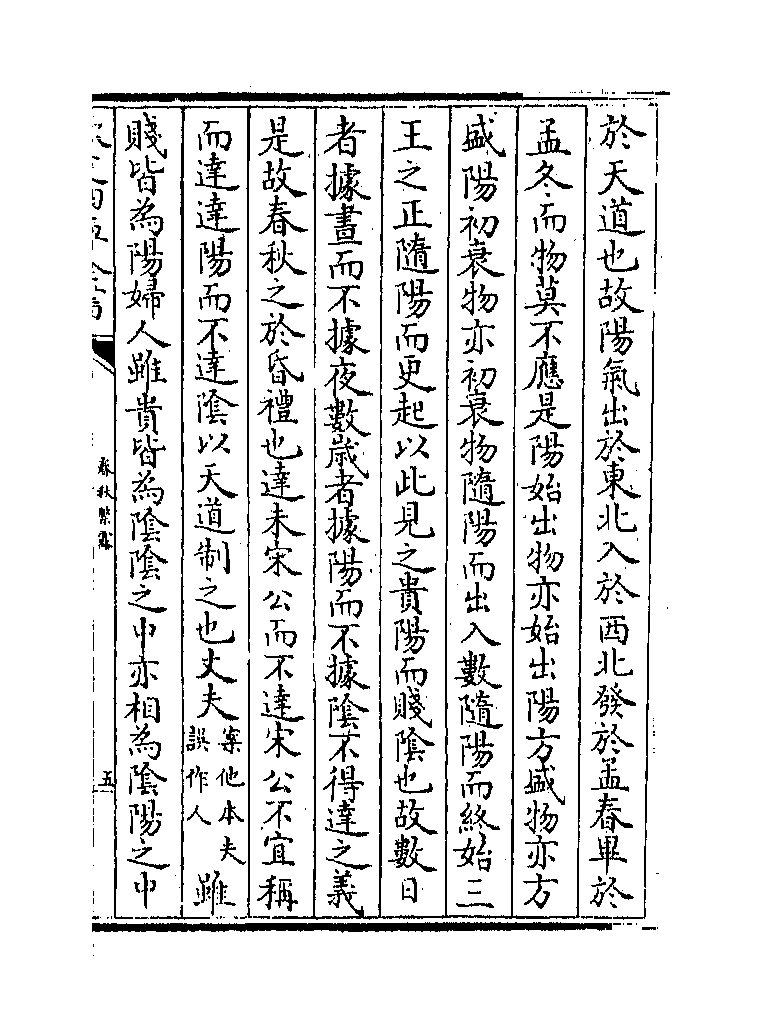 於天道也故陽氣出於東北入於西北發於孟春畢於
孟冬而物莫不應是陽始出物亦始出陽方盛物亦方
盛陽初衰物亦初衰物隨陽而出入數隨陽而終始三
王之正隨陽而更起以此見之貴陽而賤隂也故數日
者據晝而不據夜數歲者據陽而不據隂不得達之義
是故春秋之於昏禮也達未宋公而不達宋公不宜稱
而達達陽而不達隂以天道制之也丈夫案他本夫誤作人雖
賤皆為陽婦人雖貴皆為隂隂之中亦相為隂陽之中
春秋繁露
五